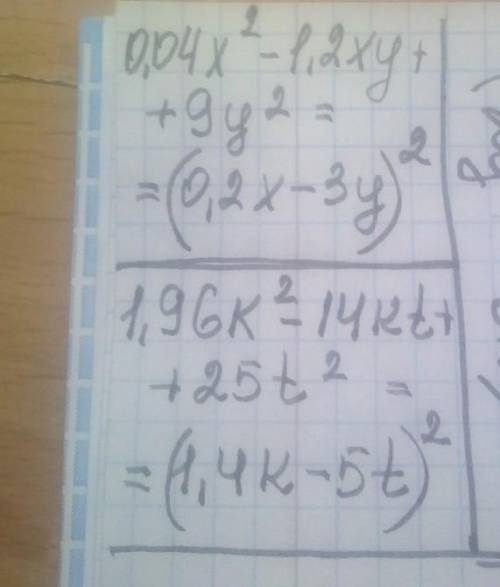 0,04x² - 1,2xy +
+ 9y² =
= (0,2x - 3y)²
1,96k² - 14kt +
+ 25t² =
= (1,4k - 5t)²